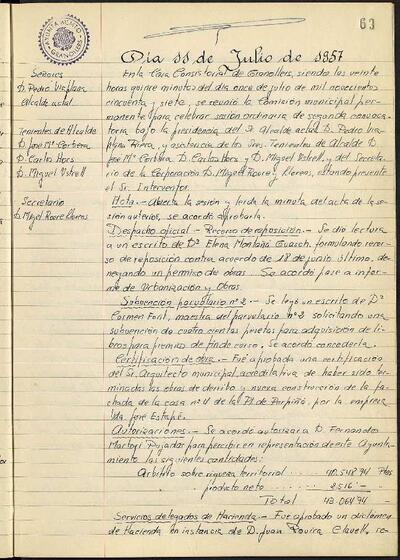 AYUNTAMIENTO
GRANOLLERS
63
Día 11 de Julio de 1957
Señores
D. Pedro Viaplana
Alcalde actal.
Tenientes de Alcalde
D. José Mª Corbera
D. Carlos Hors
D. Miguel Ustrell
Secretario
D. Miguel Roure Lloreos
En la Casa Consistorial de Granollers, siendo las veinte
horas quince minutos del día once de julio de mil novecientos
cincuenta y siete, se reunió la Comisión municipal per-
manente para celebrar sesión ordinaria de segunda convoca-
toria bajo la presidencia del Sr. Alcalde actal. D. Pedro Via-
plana Riera, y asistencia de los Sres. Tenientes de Alcalde D.
José Mª Corbera, D. Carlos Hors y D. Miguel Ustrell, y del Secreta
rio de la Corporación D. Miguel Roure y Lloreos, estando presente
el Sr. Interventor.
Nota.- Abierta la sesión y leída la minuta del acta de la se
sión anterior, se acordó aprobarla.
Despacho oficial - Recurso de reposición.- Se dió lectura
a un escrito de Dª Elena Montañá Guasch, formulando recur-
so de reposición contra acuerdo de 18 de junio último, de-
negando un permiso de obras. Se acordó pase a infor-
me de Urbanización y Obras.
Subvención parvulario nº 2.- Se leyó un escrito de Dª
Carmen Font, maestra del parvulario nº 2 solicitando una
subvención de cuatrocientas pesetas para adquisición de li-
bros para premios de fin de curso. Se acordó concederla.
Certificación de obra.- Fué aprobada una certificación
del Sr. Arquitecto municipal, acreditativa de haber sido ter-
minadas las obras de derribo y nueva construcción de la fa-
chada de la casa nº 4 de la Pl. de Perpiñá, por la empresa
Vda. José Estapé.
Autorizaciones.- Se acordó autorizar a D. Fernandes
Martori Pujador para percibir en representación de este Ayunta-
miento las siguientes cantidades:
Arbitrio sobre riqueza territorial ...... 40.548'74 Ptas
" producto neto ...... 2.516'- "
Total ...... 43.064'74 "
Servicios delegados de Hacienda.- Fué aprobado un dictamen
de Hacienda en instancia de D. Juan Rovira Clavell, so-